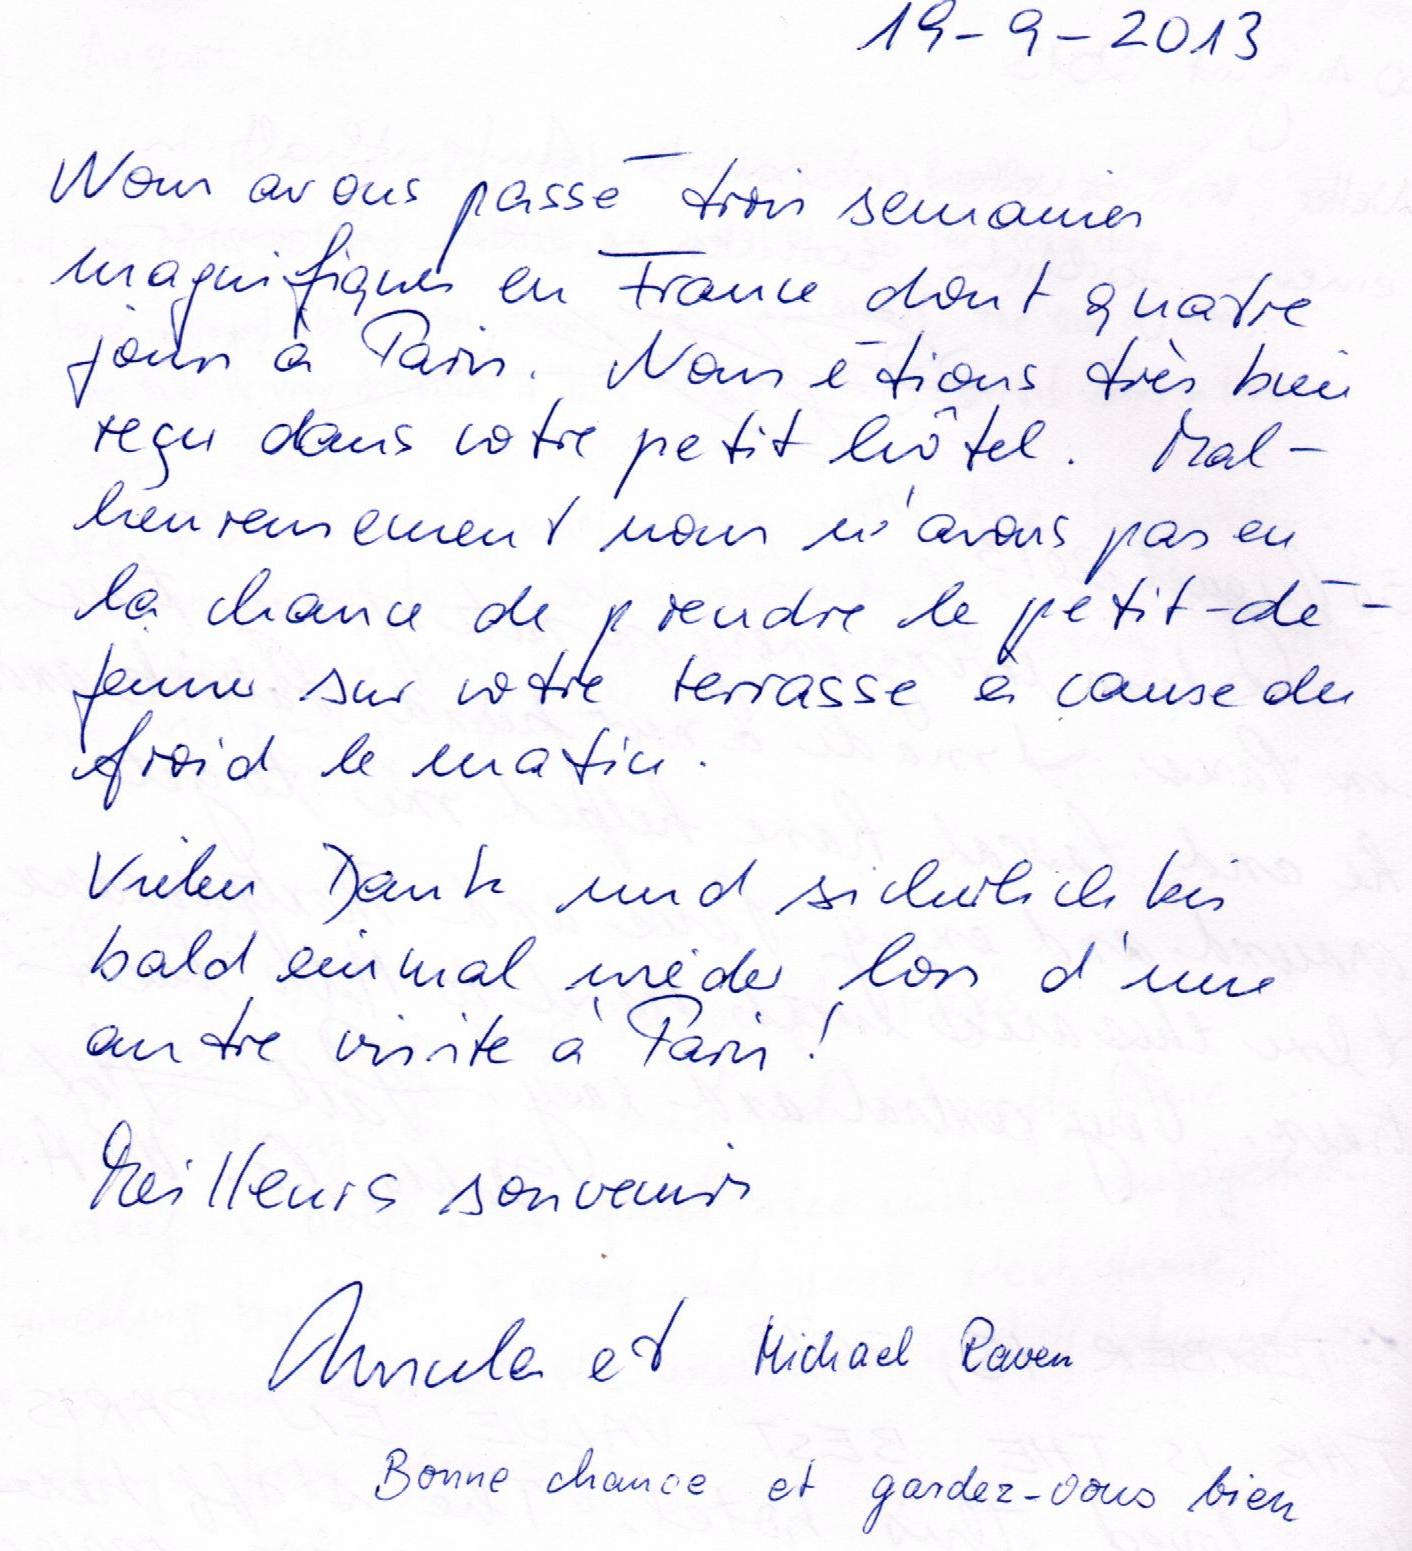 19-9-2013
Nous avons passé trois semaines
magnifiques en France dont quatre
jours à Paris. Nous étions très bien
reçu dans votre petit hôtel. Mal-
heureusement nous n'avons pas eu
la chance de prendre le petit-dé-
jeuner sur votre terrasse à cause du
froid le matin.
Vielen Dank und sicherlich bis
bald einmal wieder lors d'une
autre visite à Paris!
Meilleurs souvenirs
et Michael Raven
Bonne chance et gardez-vous bien